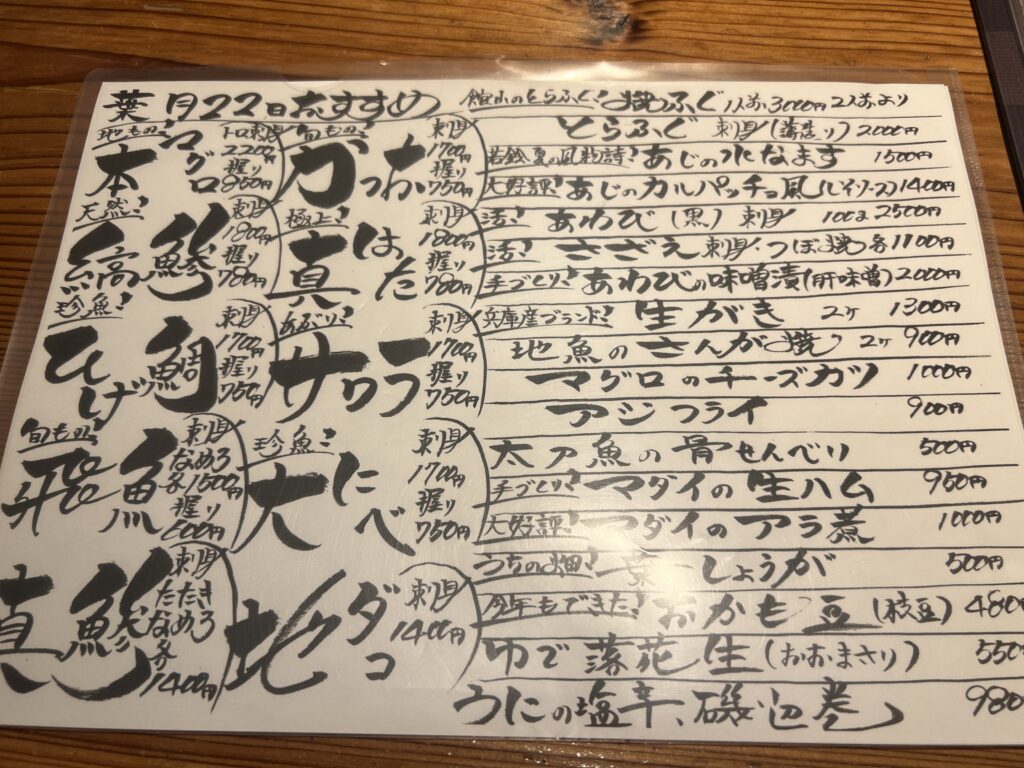 葉月22日おすすめ
地もの！ 本マグロ トロ刺身2200円 握り850円
旬もの！ かつお 刺身1700円 握り750円
天然！ 縞鯵 刺身1800円 握り780円
極上！ 真はた 刺身1800円 握り780円
珍魚！ ひげ鯛 刺身1700円 握り750円
あぶり！ サワラ 刺身1700円 握り750円
旬もの！ 飛魚 刺身 なめろ 各1500円 握り600円
珍魚！ 大にべ 刺身1700円 握り750円
真鯵 刺身 たたき なめろ 各1400円
地ダコ 刺身1400円
館山のとらふぐ！ 焼ふぐ 1人前3000円 2人前より
とらふぐ 刺身(薄造り) 2000円
若鈴 夏の風物詩！ あじの水なます 1500円
大好評！ あじのカルパッチョ風 1400円
活！ あわび(黒) 刺身 100g 2500円
活！ さざえ 刺身・つぼ焼 各1100円
手づくり！ あわびの味噌漬(肝味噌) 2000円
兵庫産ブランド！ 生がき 2ケ 1300円
地魚のさんが焼 2ケ 900円
マグロのチーズカツ 1000円
アジフライ 900円
太刀魚の骨せんべい 500円
手づくり！ マダイの生ハム 950円
大好評！ マダイのアラ煮 1000円
うちの畑！ 葉しょうが 500円
今年もできた！ おかもと豆(枝豆) 480
ゆで落花生(おおまさり) 550
うにの塩辛、磯辺巻 980